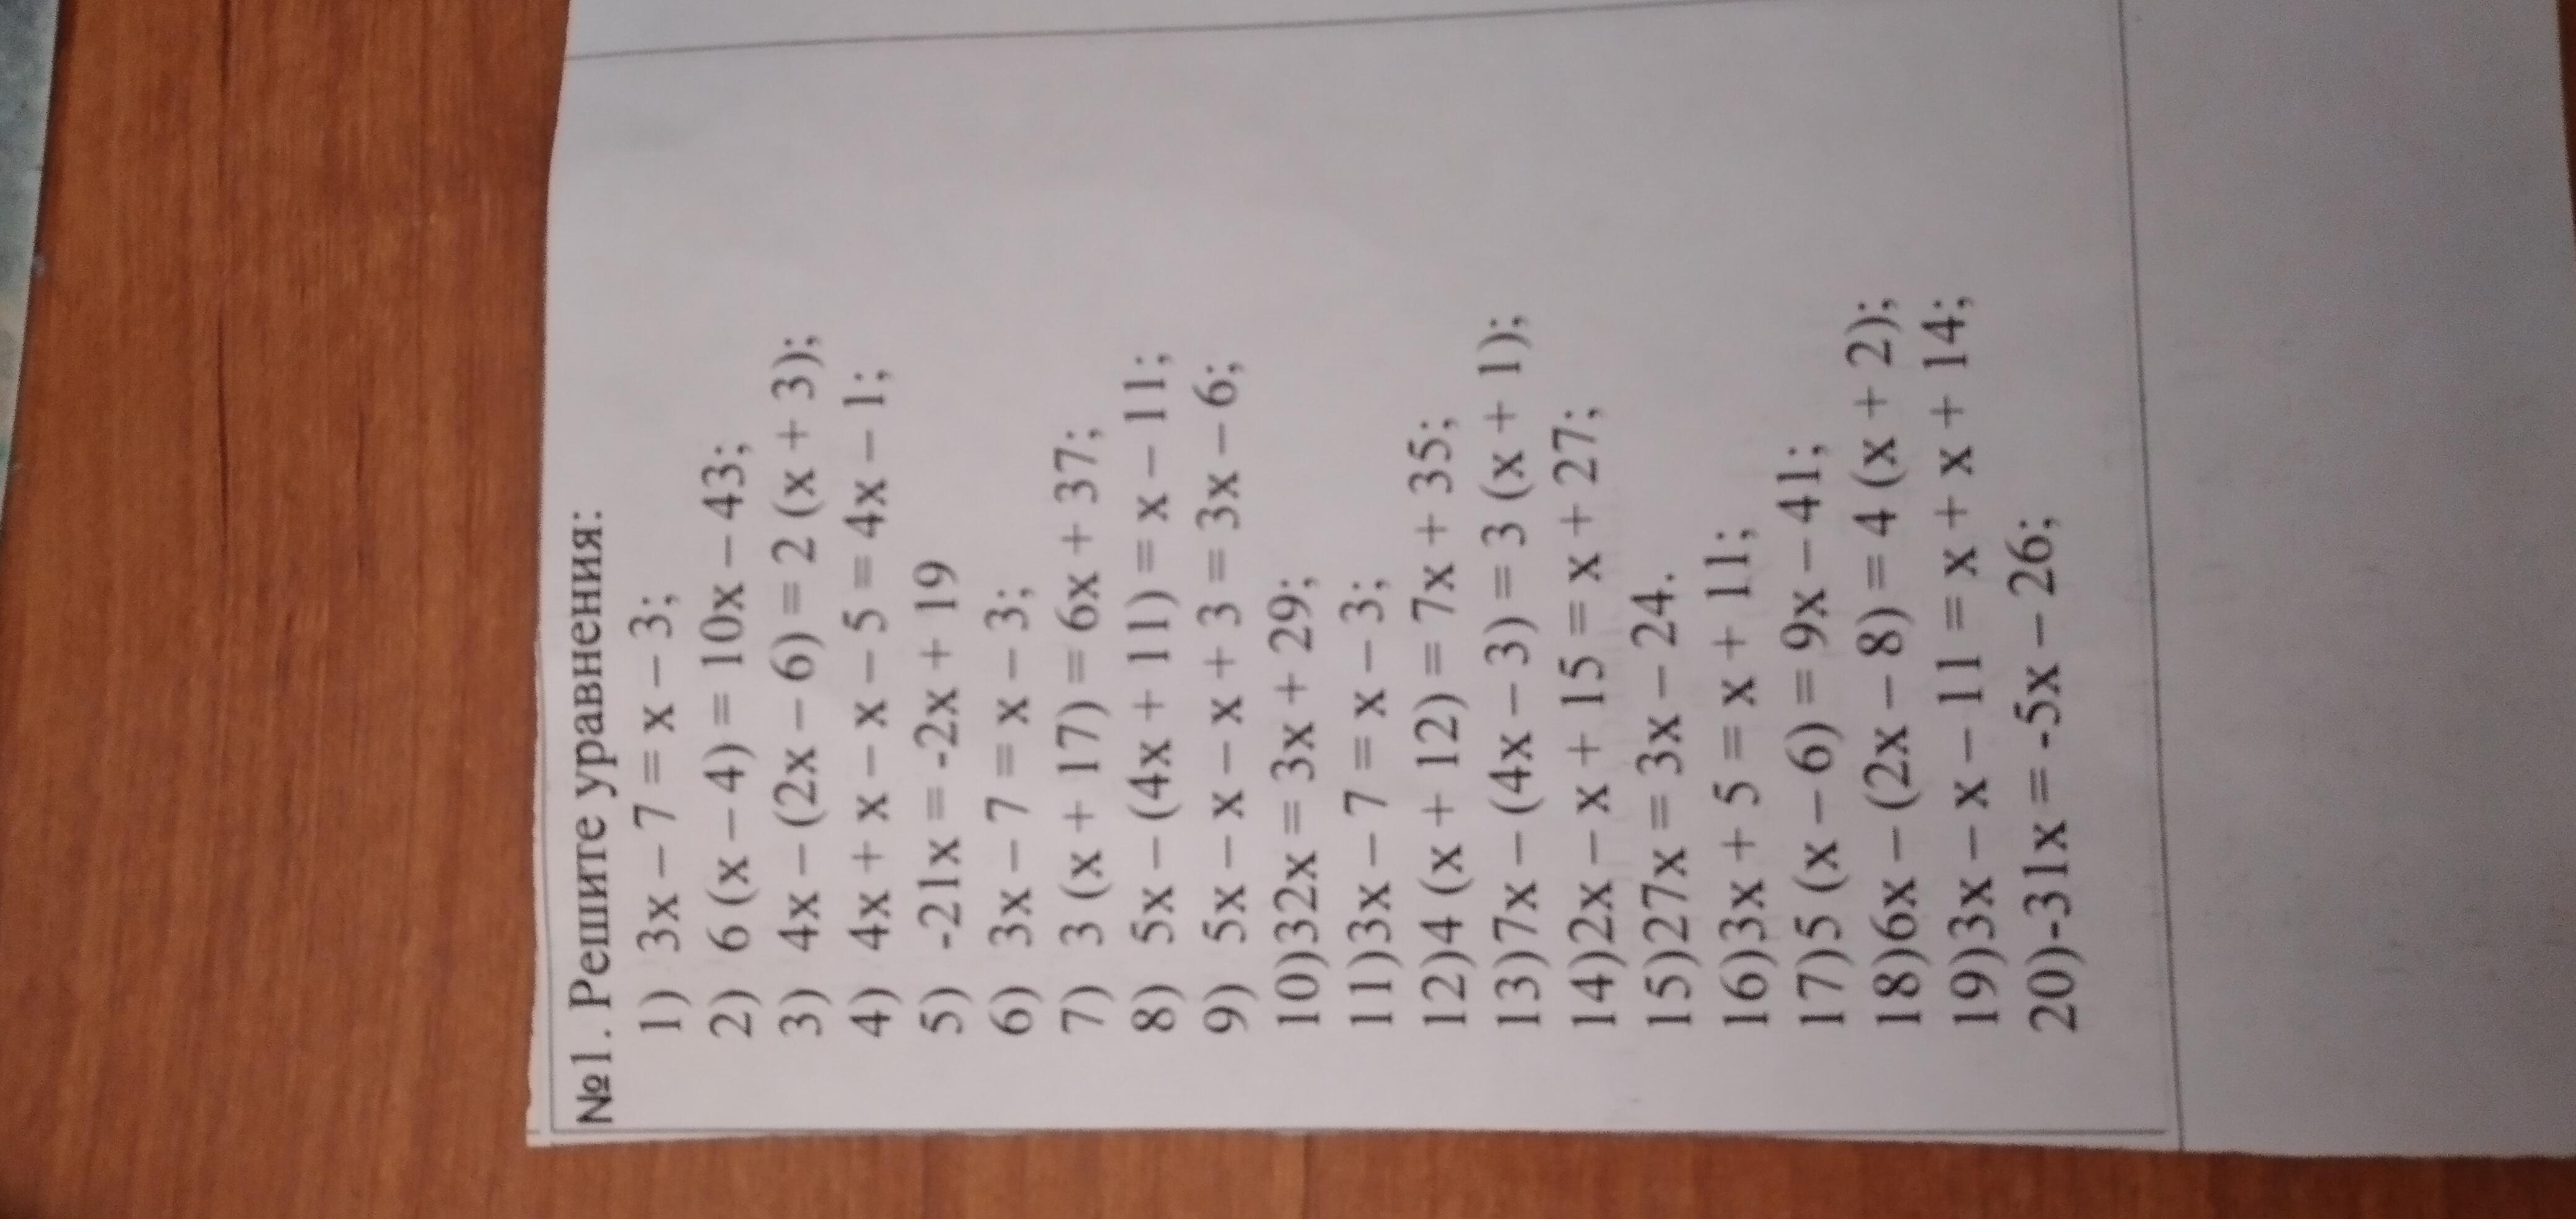 №1. Решите уравнения:
1) 3x – 7 = x – 3;
2) 6 (x – 4) = 10x – 43;
3) 4x – (2x – 6) = 2 (x + 3);
4) 4x + x – x – 5 = 4x – 1;
5) -21x = -2x + 19
6) 3x – 7 = x – 3;
7) 3 (x + 17) = 6x + 37;
8) 5x – (4x + 11) = x – 11;
9) 5x – x – x + 3 = 3x – 6;
10)32x = 3x + 29;
11)3x – 7 = x – 3;
12)4 (x + 12) = 7x + 35;
13)7x – (4x – 3) = 3 (x + 1);
14)2x – x + 15 = x + 27;
15)27x = 3x – 24.
16)3x + 5 = x + 11;
17)5 (x – 6) = 9x – 41;
18)6x – (2x – 8) = 4 (x + 2);
19)3x – x – 11 = x + x + 14;
20)-31x = -5x – 26;